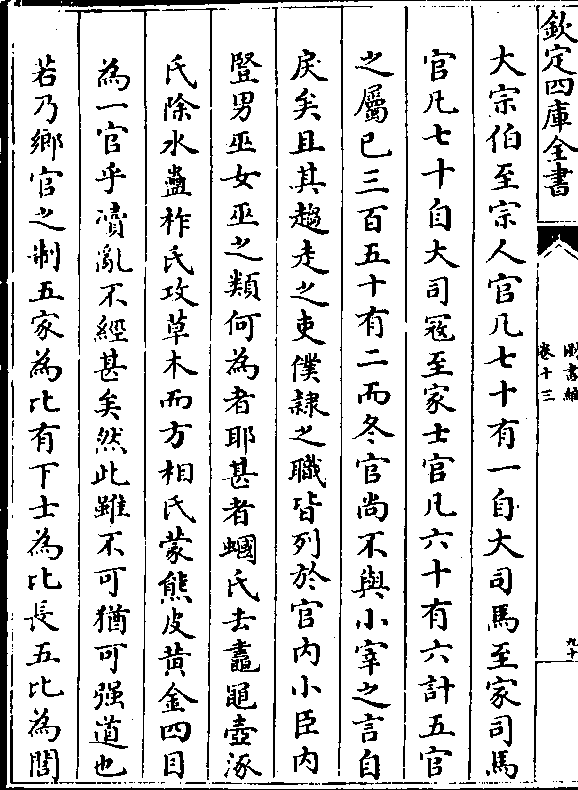 欽定四庫全書
卷十三
大宗伯至宗人官凡七十有一自大司馬至家司馬
官凡七十自大司冦至家士官凡六十有六計五官
之屬已三百五十有二而冬官尚不與小宰之言自
戾矣且其趨走之吏僕隷之職皆列於官内小臣内
豎男巫女巫之類何為者耶甚者蟈氏去鼃黽壺涿
氏除水蠱柞氏攻草木而方相氏蒙熊皮黄金四目
為一官乎凟亂不經甚矣然此雖不可猶可强道也
若乃鄉官之制五家為比有下士為比長五比為閭